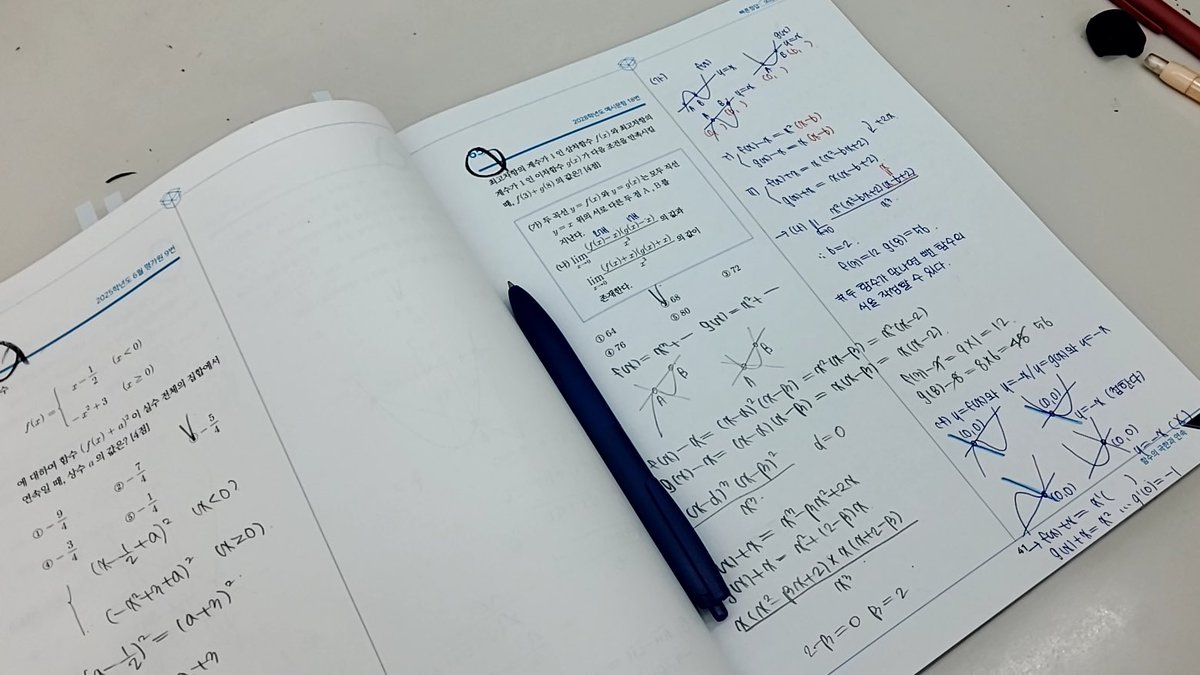 2025학년도 6월 평가원 9번
f(x) = { x - 1/2 (x < 0)
-x² + 3 (x ≥ 0)
에 대하여 함수 (f(x) + a)²이 실수 전체의 집합에서
연속일 때, 상수 a의 값은? [4점]
① -9/4 ② -7/4 -5/4
④ -3/4 ⑤ -1/4
(x - 1/2 + a)² (x < 0)
(-x² + 3 + a)² (x ≥ 0)
(a - 1/2)² = (a + 3)²
2028학년도 예시문항 18번
최고차항의 계수가 1인 삼차함수 f(x)와 최고차항의
계수가 1인 이차함수 g(x)가 다음 조건을 만족시킬
때, f(3) + g(8)의 값은? [4점]
(가) 두 곡선 y = f(x)와 y = g(x)는 모두 직선
y = x 위의 서로 다른 두 점 A, B를
지난다.
(나) lim x→0 (f(x) - x)(g(x) - x) / x³ 의 값과
lim x→0 (f(x) + x)(g(x) + x) / x³ 의 값이
존재한다.
① 64 68 ③ 72
④ 76 ⑤ 80
f(x) = x³ + ― g(x) = x² + ―
A B A B
f(x) - x = (x - α)²(x - β) = x²(x - 2)
g(x) - x = (x - α)(x - β) = x(x - 2)
(x - α)³(x - β)² / x³ α = 0
f(x) + x = x³ - βx² + 2x
g(x) + x = x² + (2 - β)x
x(x² - βx + 2) × x(x + 2 - β) / x³
2 - β = 0 β = 2
(가) f(x) y = x g(x) y = x
f(x) - x = x²(x - b)
g(x) - x = x(x - b)
+2x
f(x) + x = x(x² - bx + 2)
g(x) + x = x(x - b + 2)
→ (나) lim x→0 x²(x² - bx + 2)(x - b + 2) / x³
∴ b = 2
f(3) = 12 g(8) = 56
# 두 함수가 만나면 뺀 함수의
식을 작성할 수 있다.
f(3) - 3 = 9 × 1 = 12
g(8) - 8 = 8 × 6 = 48 56
(나) y = f(x)와 y = -x / y = g(x)와 y = -x
(0,0) (0,0) y = -x (접한다)
(0,0) (0,0) y = -x (x)
→ f(x) + x = x²( )
g(x) + x = x² … g'(0) = -1
함수의 극한과 연속